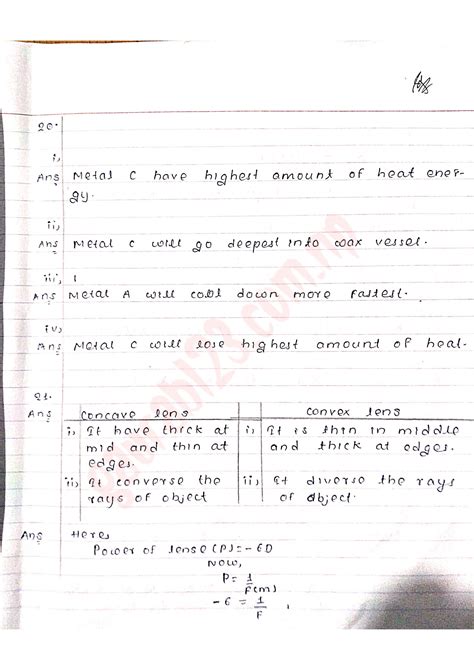 20.
i,
Ans Metal C have highest amount of heat ener-
gy.
ii,
Ans Metal C will go deepest into wax vessel.
iii, 1
Ans Metal A will cool down more fastest.
iv,
Ans Metal C will lose highest amount of heat.
21.
Ans Concave lens | Convex lens
i, It have thick at | i, It is thin in middle
mid and thin at | and thick at edges.
edges.
ii, It converse the | ii, It diverse the rays
rays of object | of object.
Ans Here,
Power of lense (P) = -6D
Now,
P = 1/F(m)
-6 = 1/F,